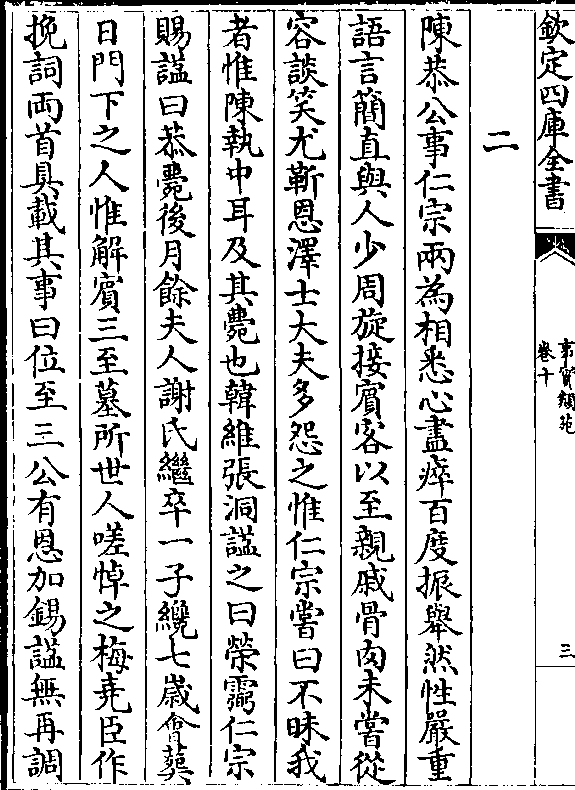 欽定四庫全書
事實類苑
卷十
三
二
陳恭公事仁宗兩為相悉心盡瘁百度振舉然性嚴重
語言簡直與人少周旋接賓客以至親戚骨肉未嘗從
容談笑尤靳恩澤士大夫多怨之惟仁宗嘗曰不昧我
者惟陳執中耳及其薨也韓維張洞諡之曰榮靈仁宗
賜諡曰恭薨後月餘夫人謝氏繼卒一子纔七歲㑹葬
日門下之人惟解賓三至墓所世人嗟悼之梅堯臣作
挽詞両首具載其事曰位至三公有恩加錫諡無再調